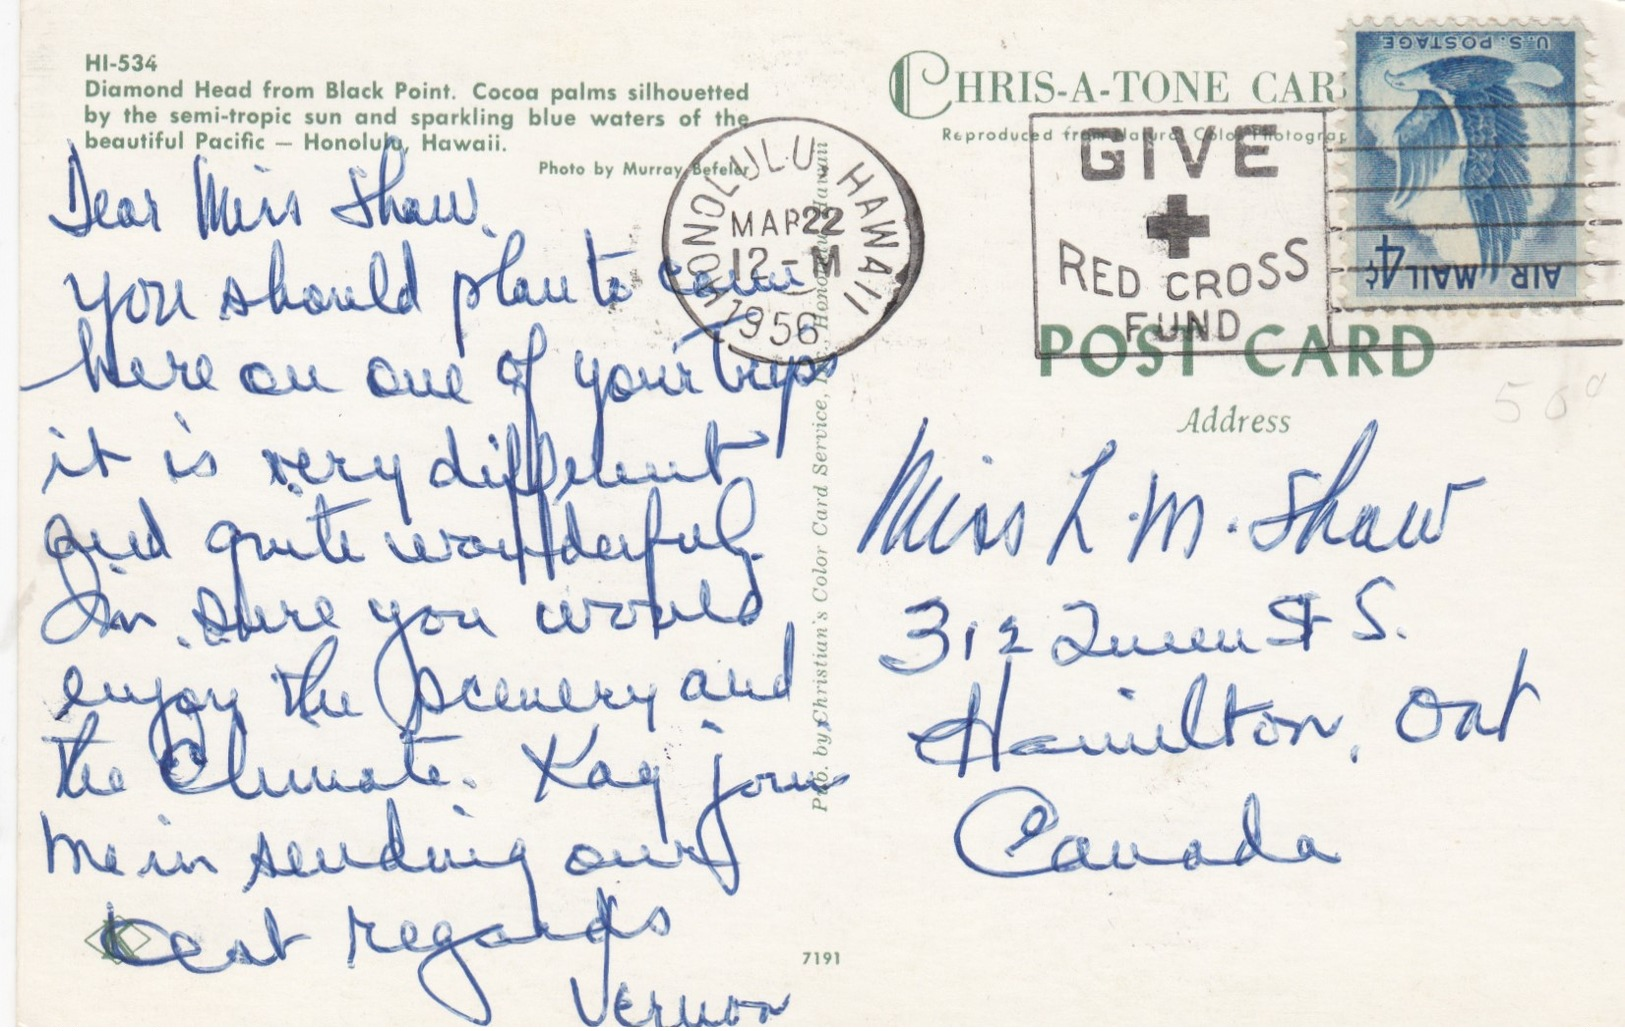 HI-534
Diamond Head from Black Point. Cocoa palms silhouetted
by the semi-tropic sun and sparkling blue waters of the
beautiful Pacific — Honolulu, Hawaii.
Photo by Murray Befeler
Dear Miss Shaw.
you should plan to come
here on one of your trips
it is very different
and quite wonderful.
Im sure you would
enjoy the scenery and
the Climate. Kay joins
me in sending our
best regards
Vernon
7191
Pub. by Christian's Color Card Service, Honolulu, Hawaii
HONOLULU HAWAII
MAR 22
12 - M
1956
CHRIS-A-TONE CAR
Reproduced from Natural Color Photograp
GIVE
RED CROSS
FUND
U.S. POSTAGE
AIR MAIL 4¢
POST CARD
Address
Miss L. M. Shaw
312 Queen St S.
Hamilton, Ont
Canada